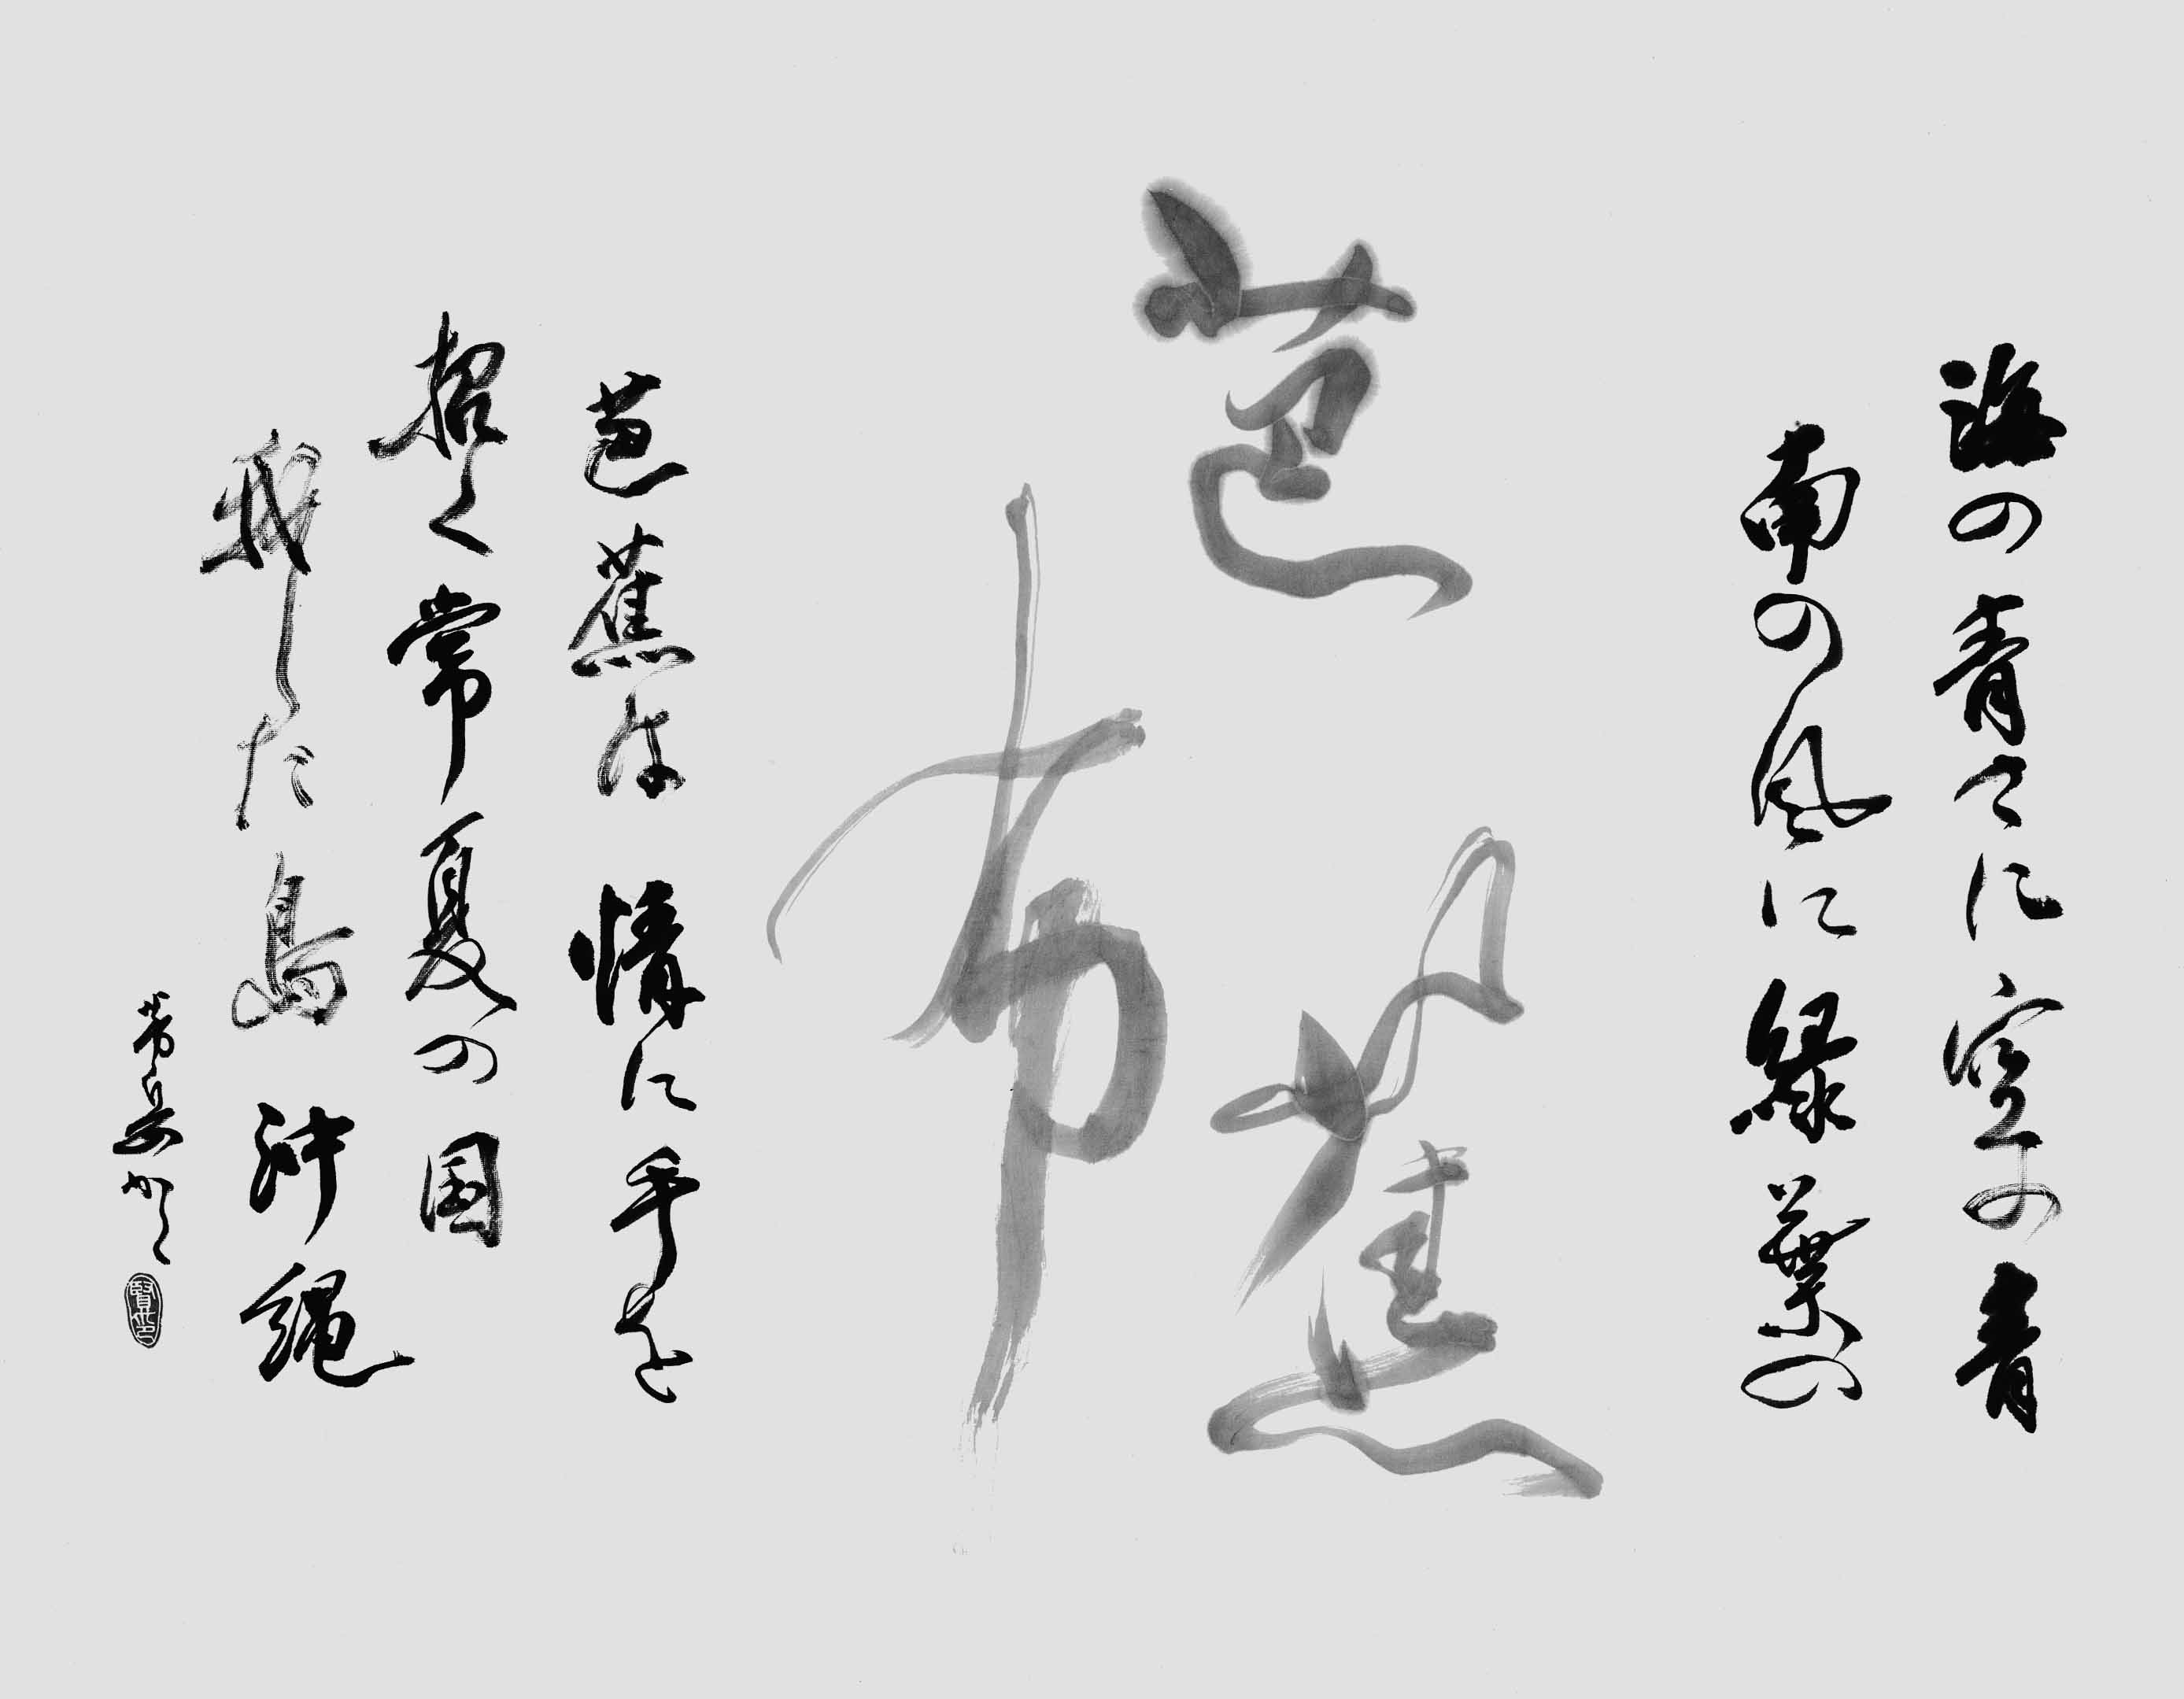 海の青さに空の青
南の風に緑葉の
芭蕉布
芭蕉は情に手を
招く常夏の国
我した島沖縄